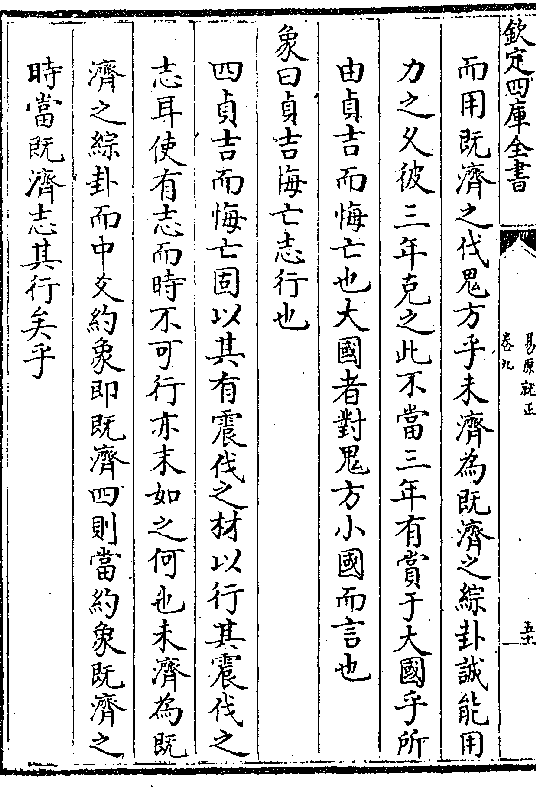 欽定四庫全書
易原就正
卷九
而用既濟之伐鬼方乎未濟為既濟之綜卦誠能用
力之久彼三年克之此不當三年有賞于大國乎所
由貞吉而悔亡也大國者對鬼方小國而言也
象曰貞吉悔亡志行也
四貞吉而悔亡固以其有震伐之材以行其震伐之
志耳使有志而時不可行亦末如之何也未濟為既
濟之綜卦而中爻約象即既濟四則當約象既濟之
時當既濟志其行矣乎